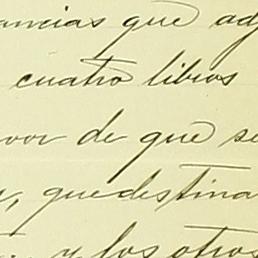 ancias que ad
cuatro libros
vor de que se
, que destina
y los otros